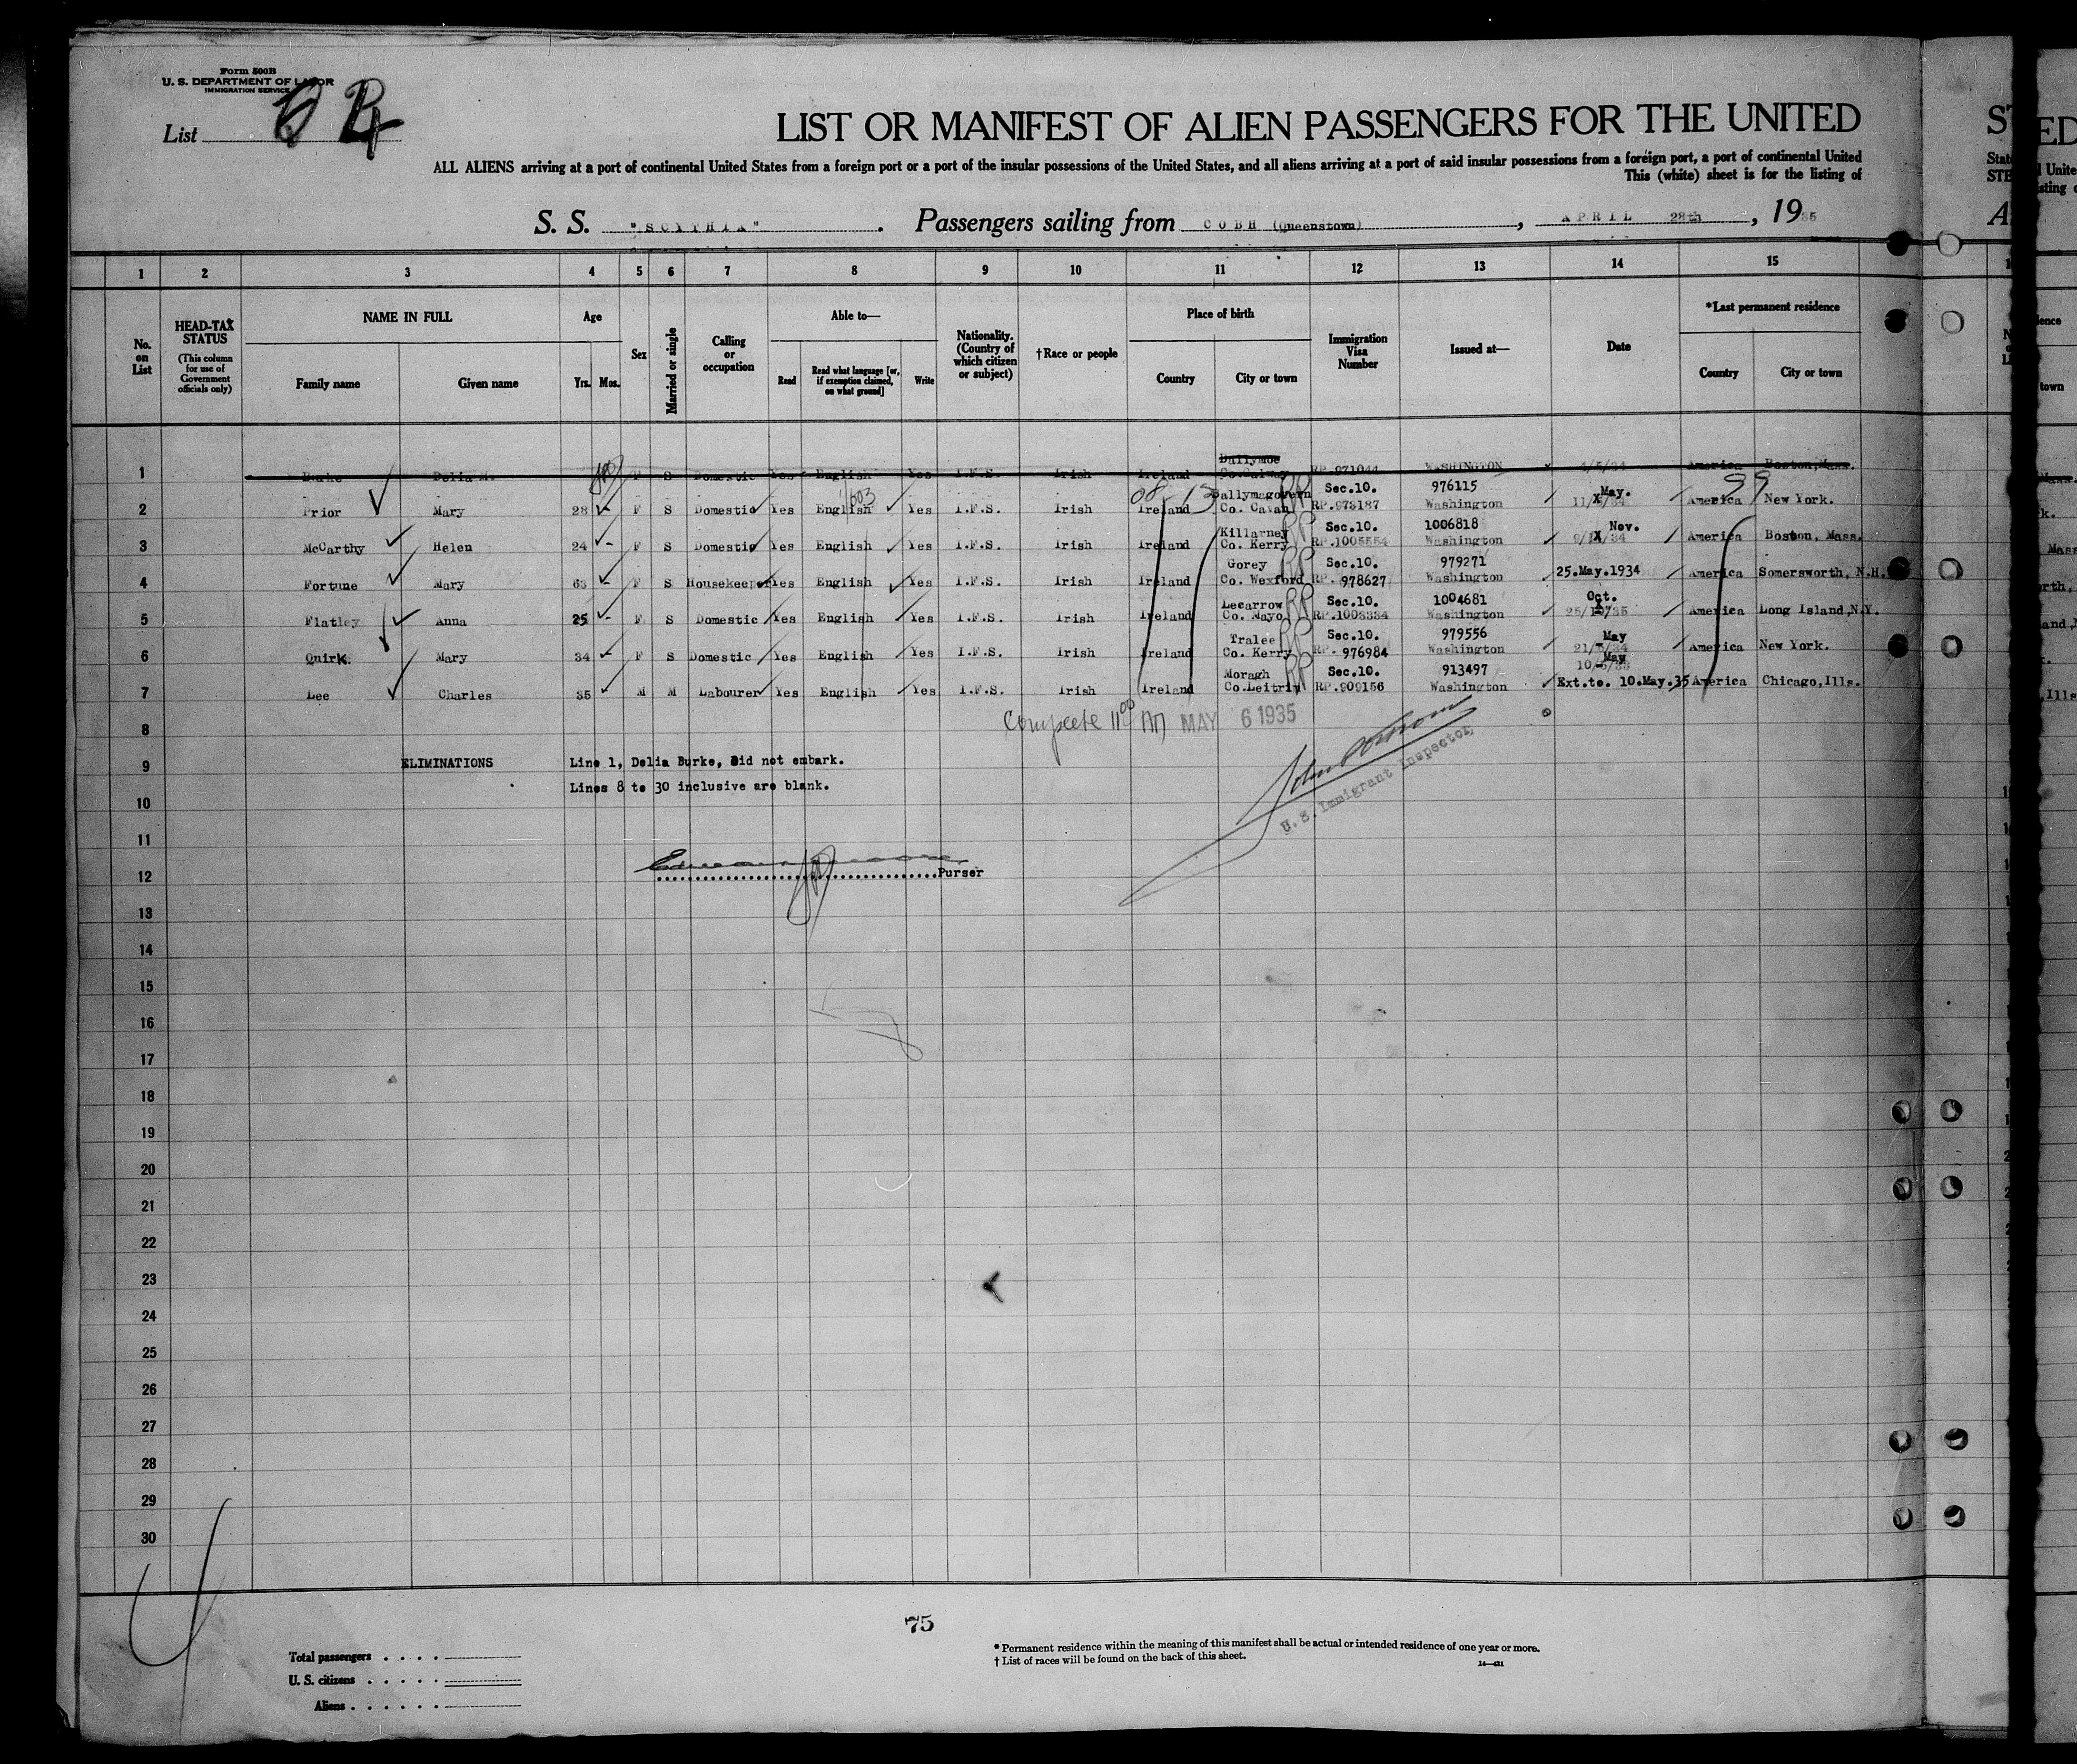 Form 500B
U. S. DEPARTMENT OF LABOR
IMMIGRATION SERVICE
List
LIST OR MANIFEST OF ALIEN PASSENGERS FOR THE UNITED
ALL ALIENS arriving at a port of continental United States from a foreign port or a port of the insular possessions of the United States, and all aliens arriving at a port of said insular possessions from a foreign port, a port of continental United
This (white) sheet is for the listing of
S. S. "SCYTHIA". Passengers sailing from COBH (Queenstown), APRIL 28th, 1935
1 2 3 4 5 6 7 8 9 10 11 12 13 14 15
No. on List
HEAD-TAX STATUS (This column for use of Government officials only)
NAME IN FULL Family name Given name
Age Yrs. Mos.
Sex
Married or single
Calling or occupation
Able to— Read Read what language [or, if exemption claimed, on what ground] Write
Nationality. (Country of which citizen or subject)
†Race or people
Place of birth Country City or town
Immigration Visa Number
Issued at—
Date
*Last permanent residence Country City or town
1 Burke Delia M. F S Domestic Yes English Yes I.F.S. Irish Ireland Ballymoe Co.Galway RP.971044 WASHINGTON America Boston,Mass.
2 Prior Mary 28 - F S Domestic Yes English Yes I.F.S. Irish Ireland Ballymagovern Co. Cavan Sec.10. RP.973187 976115 Washington May. America New York.
3 McCarthy Helen 24 - F S Domestic Yes English Yes I.F.S. Irish Ireland Killarney Co. Kerry Sec.10. RP.1005554 1006818 Washington Nov. America Boston, Mass.
4 Fortune Mary 63 - F S Housekeeper Yes English Yes I.F.S. Irish Ireland Gorey Co. Wexford Sec.10. RP. 978627 979271 Washington 25.May.1934 America Somersworth, N.H.
5 Flatley Anna 25 - F S Domestic Yes English Yes I.F.S. Irish Ireland Lecarrow Co. Mayo Sec.10. RP.1003334 1004681 Washington Oct. America Long Island,N.Y.
6 Quirk. Mary 34 - F S Domestic Yes English Yes I.F.S. Irish Ireland Tralee Co. Kerry Sec.10. RP. 976984 979556 Washington May America New York.
7 Lee Charles 35 M M Labourer Yes English Yes I.F.S. Irish Ireland Moragh Co.Leitrim Sec.10. RP.909156 913497 Washington May Ext.to. 10.May.35 America Chicago,Ills.
Complete 11 00 AM MAY 6 1935
8
9 ELIMINATIONS Line 1, Delia Burke, did not embark.
Lines 8 to 30 inclusive are blank.
10
U. S. Immigrant Inspector
11
12 Purser
13
14
15
16
17
18
19
20
21
22
23
24
25
26
27
28
29
30
75
Total passengers
U. S. citizens
Aliens
* Permanent residence within the meaning of this manifest shall be actual or intended residence of one year or more.
† List of races will be found on the back of this sheet.